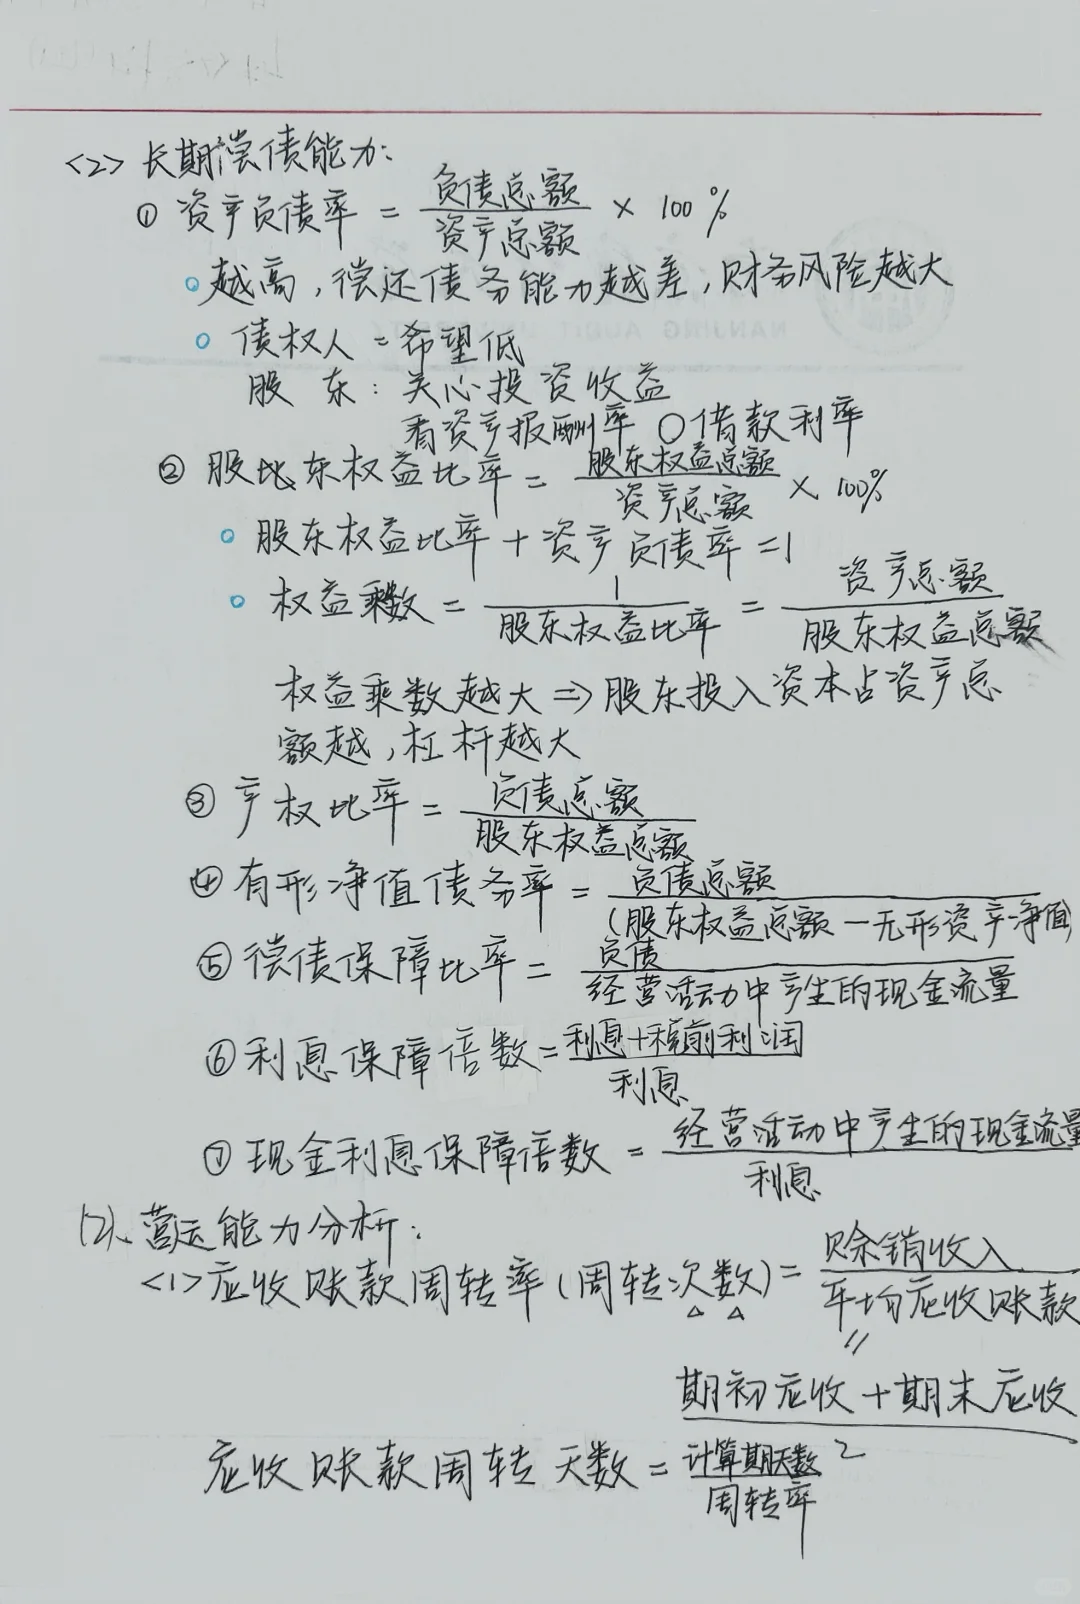 <2> 长期偿债能力:
① 资产负债率 = 负债总额 / 资产总额 × 100%
越高,偿还债务能力越差,财务风险越大
债权人 = 希望低
股 东: 关心投资收益
看资产报酬率 ○ 借款利率
② 股比东权益比率 = 股东权益总额 / 资产总额 × 100%
股东权益比率 + 资产负债率 = 1
权益乘数 = 1 / 股东权益比率 = 资产总额 / 股东权益总额
权益乘数越大 => 股东投入资本占资产总
额越,杠杆越大
③ 产权比率 = 负债总额 / 股东权益总额
④ 有形净值债务率 = 负债总额 / (股东权益总额 - 无形资产净值)
⑤ 偿债保障比率 = 负债 / 经营活动中产生的现金流量
⑥ 利息保障倍数 = 利息+税前利润 / 利息
⑦ 现金利息保障倍数 = 经营活动中产生的现金流量 / 利息
(2)、营运能力分析:
<1> 应收账款周转率(周转次数) = 赊销收入 / 平均应收账款
=
期初应收 + 期末应收 / 2
应收账款周转天数 = 计算期天数 / 周转率
NANJING AUDIT UNIVERSITY